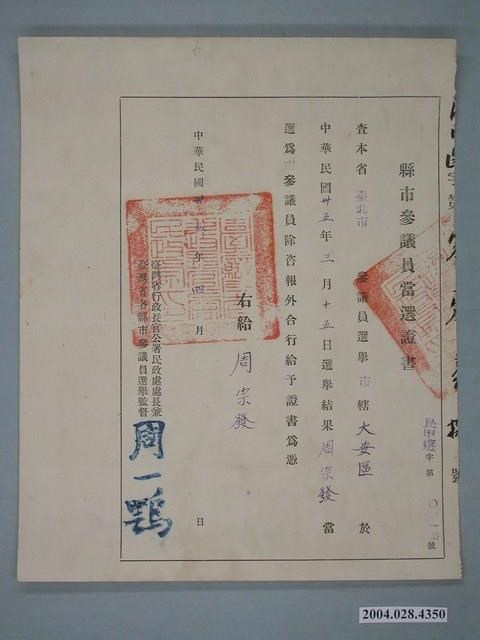 縣市參議員當選證書
民甲選字第 號
查本省臺北市參議員選舉市轄大安區於
中華民國卅五年三月十五日選舉結果周宗發當
選為市參議員除咨報外合行給予證書為憑
右給 周宗發
臺灣省行政長官公署民政處處長兼
臺灣省各縣市參議員選舉監督 周一鶚
中華民國卅五年四月 日
2004.028.4350